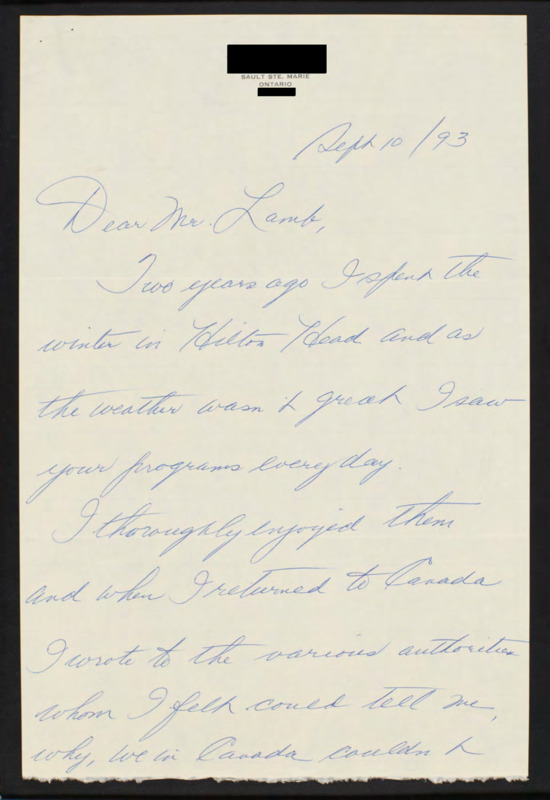 SAULT STE. MARIE
ONTARIO
Sept 10/93
Dear Mr. Lamb,
Two years ago I spent the
winter in Hilton Head and as
the weather wasn't great I saw
your programs every day.
I thoroughly enjoyed them
and when I returned to Canada
I wrote to the various authorities
whom I felt could tell me,
why, we in Canada couldn't